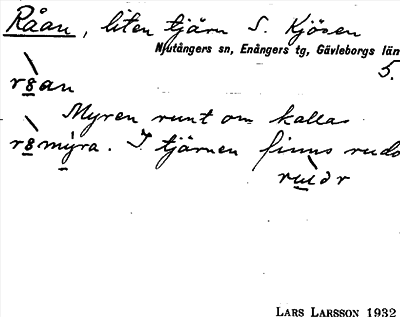 Råan, liten tjärn S. Kjösen
Njutångers sn, Enångers tg, Gävleborgs län
5.
r8an
Myren runt om kallas
r8mýra. I tjärnen finns rudo
rudr
LARS LARSSON 1932